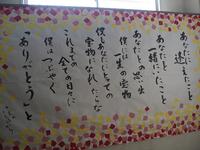 あなたに逢えたこと
あなたと一緒にいたこと
あなたとの思い出
僕には一生の宝物
僕もあなたにとっての
宝物になれたらな
これまでの全ての日々に
僕はつぶやく
「ありがとう」と